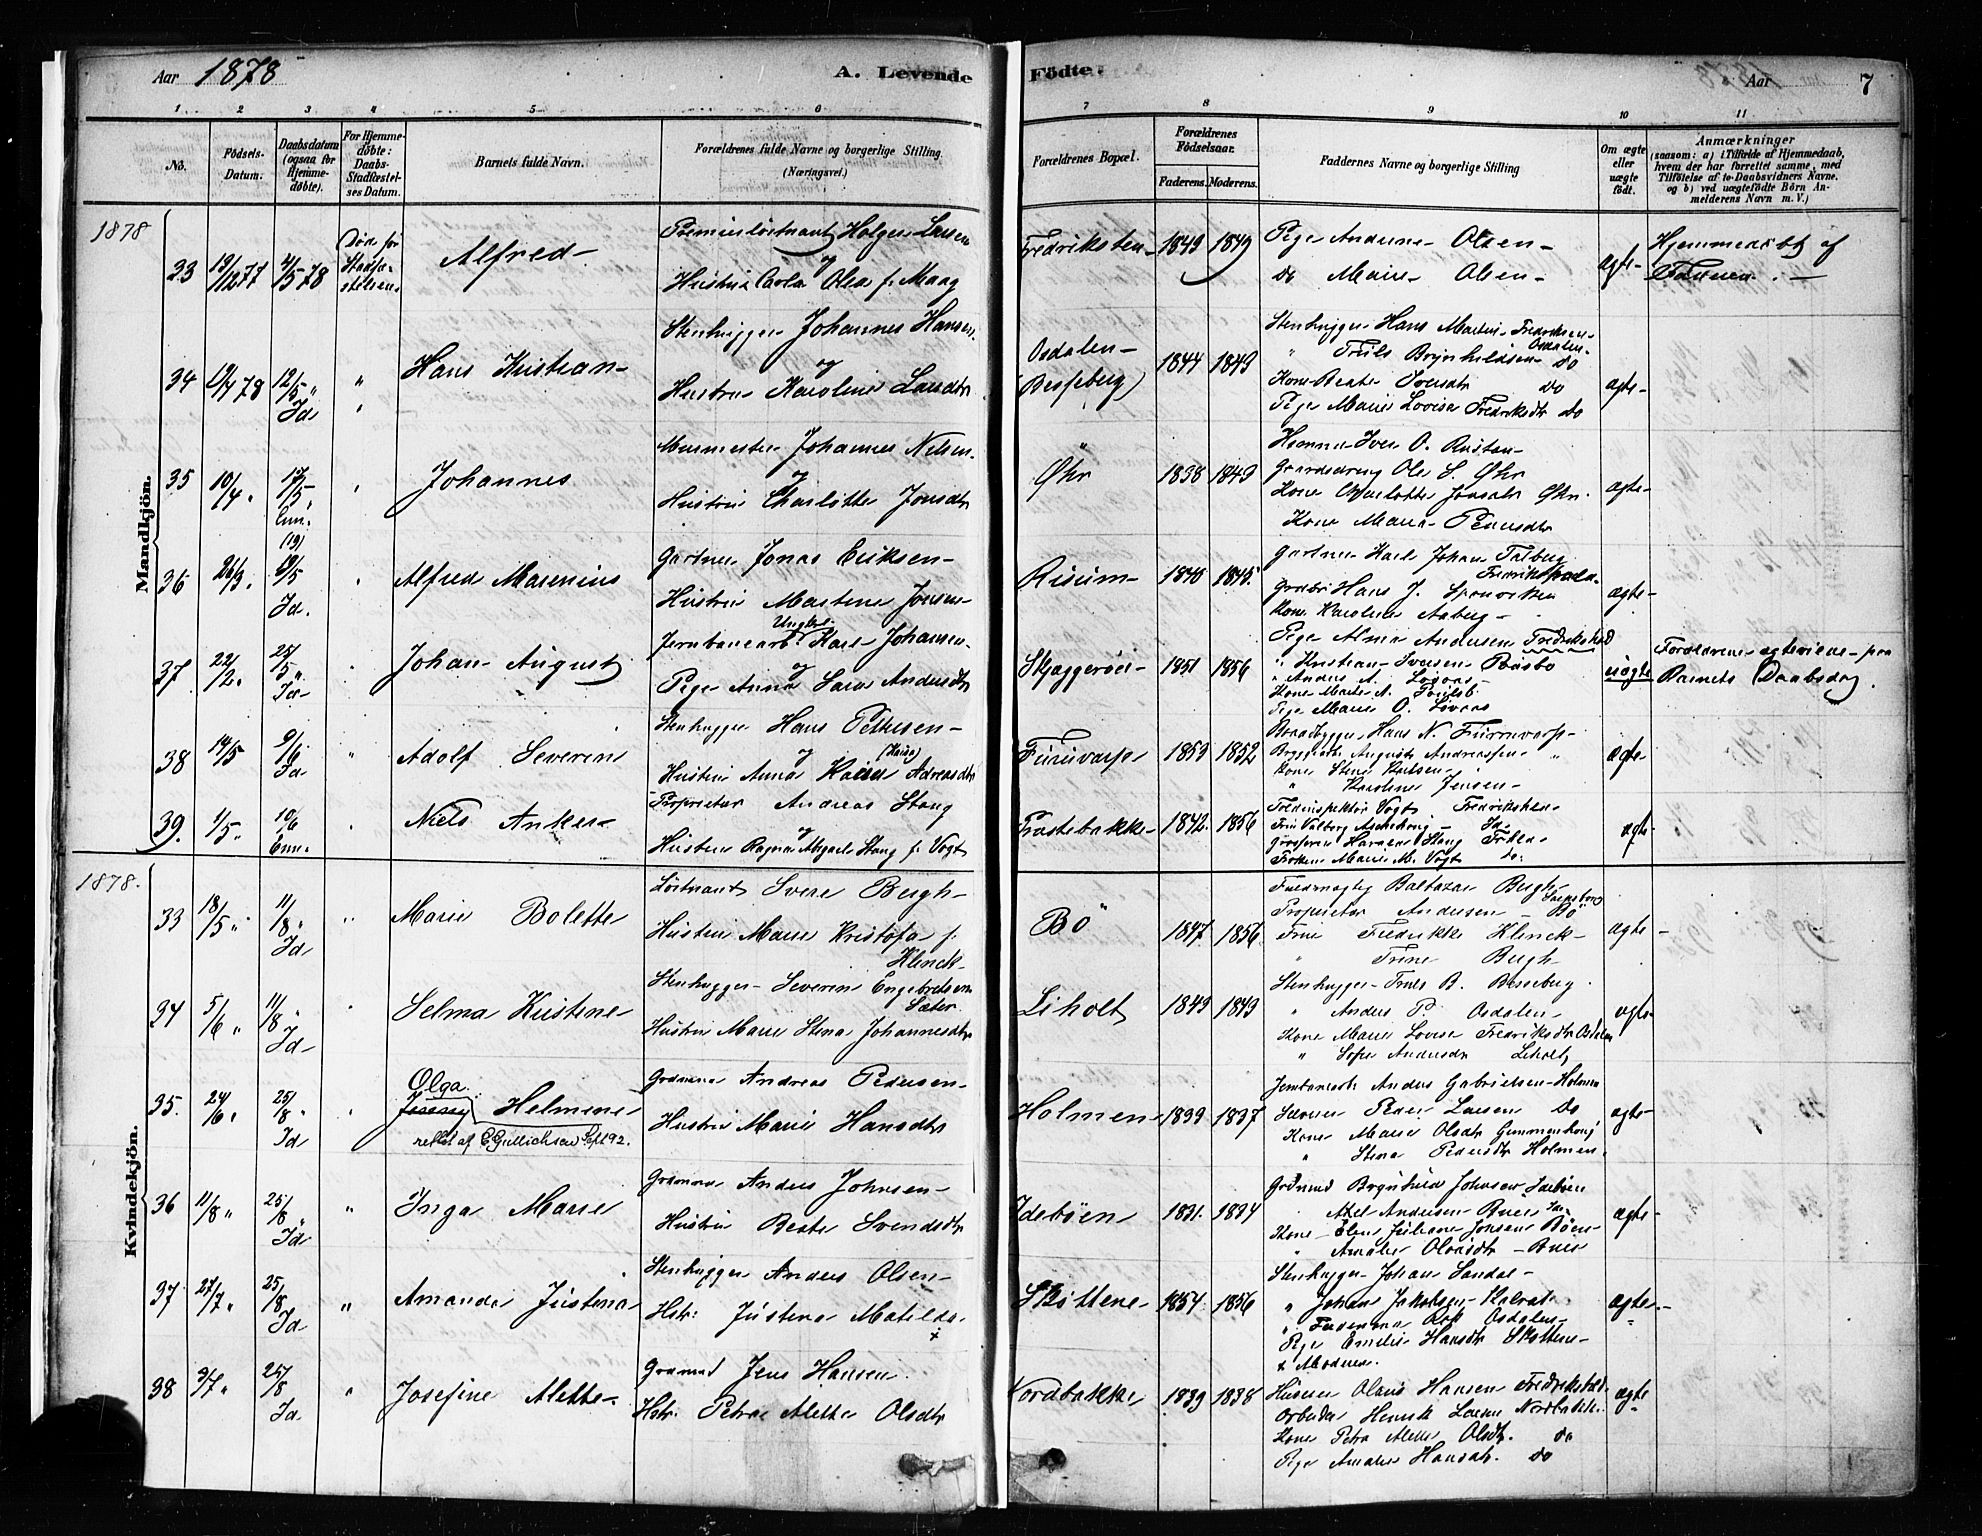 Aar 1878 A. Levende Födte. Aar 7
1 2 3 4 5 6 7 8 9 10 11
No.
Födsels-Datum.
Daabsdatum (ogsaa for Hjemmedöbte).
For Hjemmedöbte: Daabs-Stadfæstelses Datum.
Barnets fulde Navn.
Forældrenes fulde Navne og borgerlige Stilling. (Næringsvei.)
Forældrenes Bopæl.
Forældrenes Födselsaar.
Faderens. Moderens.
Faddernes Navne og borgerlige Stilling
Om ægte eller uægte födt.
Anmærkninger
(saasom: a) i Tilfælde af Hjemmedaab, hvem der har forrettet samme, med Tilföielse af to Daabsvidners Navne, og b) ved uægtefödte Börn Anmelderens Navn m. V.)
Mandkjön.
1878
33 19/12 77 4/5 78 Alfred
Premierlöitnant Holger Larsen
og
Hustru Carla Olea f. Maag
Fredriksten 1849 1849
Pige Andrine Olsen
do Marie Olsen
ægte
Hjemmedöbt af
34 19/4 78 12/5 " Id " Hans Kristian
Stenhugger Johannes Hansen
og
Hustru Karoline Larsdtr
Osdalen
(Besseberg)
1844 1849
Stenhugger Hans Martin Fredriksen
Osdalen
" Truls Brynhildsen do
Kone Beate Iversdtr do
Pige Marie Lovise Fredriksdtr do
ægte
35 10/4 " 17/5 Enn. Johannes
Murmester Johannes Nilsen
og
Hustru Charlotte Jonsdtr
Øhr 1838 1849
Ole S. Øhr
Kone Charlotte Jonsdtr Øhr
Kone Maria Pedersdtr
ægte
36 26/3 " (19) 19/5 Id. Alfred Marenius
Gartner Jonas Eriksen
Hustru Martine Jonsen
Risum 1840 1845
Gartner Karl Johan Talberg
Hans J.
Kone Karoline Aaberg
ægte
37 22/2 " 25/5 " Id Johan August
Ungkarl
Jernbanearb. Karl Johansen
og
Pige Anna Sara Andersdtr
Skjaggeröie 1851 1856
Pige Alma Andersen Fredrikshald
" Kristian Iversen Risbo
" Anders A.
Kone Marte A.
Pige Marie O.
uægte
Forældrene ægteviede paa
Barnets Daabsdag.
38 14/5 9/6 Id " Adolf Severin
Stenhugger Hans Pettersen
og
(Kaisa)
Hustru Anna Kaisa Andreasdtr
Furuvarp 1853 1852
Hans N. Furuvarp
August Andreassen "
Kone Stine Karlsen
" Karoline Jensen
ægte
39. 1/5 10/6 Enn. Niels Anker
Proprietær Andreas Stang
og
Hustru Ragna Abigael Stang f. Vogt
Præstebakke 1842. 1856
Vogt Fredrikshald
Frk Marie M. Vogt do.
ægte
Kvindekjön.
1878.
33 18/5 " 11/8 " Id " Marie Bolette
Löitnant Svere Bergh
Hustru Marie Kristofa f.
Klenck
Bö 1847 1856
Fuldmægtig Baltazar Bergh
Sarpsborg
Proprietær Andersen Bö
Frue Fredrikke Klenck
" Trine Bergh
ægte
34 5/6 " 11/8 " Id " Selma Kristine
Stenhugger Severin Engebretsen
Sæter
Hustru Marie Stina Johannesdtr
Liholt 1849 1849
Stenhugger Truls B. Besseberg
" Anders P. Osdalen
Kone Marie Lovise Fredriksdtr Osdalen
" Sofie Andersdtr Liholt
ægte
35. 24/6 " 25/8 " Id " Olga
Helmine
rettet af E. Gullichsen Sept 92.
Grdmand Andreas Pedersen
Hustru Marie Hansdtr
Holmen 1833 1837
Jernbanearb. Anders Gabrielsen Holmen
Peder Larsen do
Kone Marie Olsdtr
" Stina Pedersdtr Holmen
ægte
36 11/8 " 25/8 " Id " Inga Marie
Grdmand Anders Johnsen
Hustru Beate Svendsdtr
Ideböen 1831. 1834
Grdmand Brynhild Johnsen Ideböen
" Axel Andersen Buer Id.
Kone Elen Juliane Jonsen Böen
" Amalie Olavsdtr Buer
ægte
37 27/7 " 25/8 " Id " Amanda Justina
Stenhugger Anders Olsen
Hstr. Justina Matilda
+
Skottene 1854 1856
Stenhugger Johan Sandal
" Johan Jakobsen
Osdalen
Pige Emilie Hansdtr Skottene
+ Moderen.
ægte
38 9/7 " 25/8 Id " Josefine Alette
Grdmand Jens Hansen
Hstr. Petra Alette Olsdtr
Nordbakke 1839 1838
Husmand Olaus Hansen Fredrikshald
Arbeider Henrik Larsen Nordbakke
Kone Petra Alette Olsdtr. do
Pige Amalie Hansdtr. do
ægte